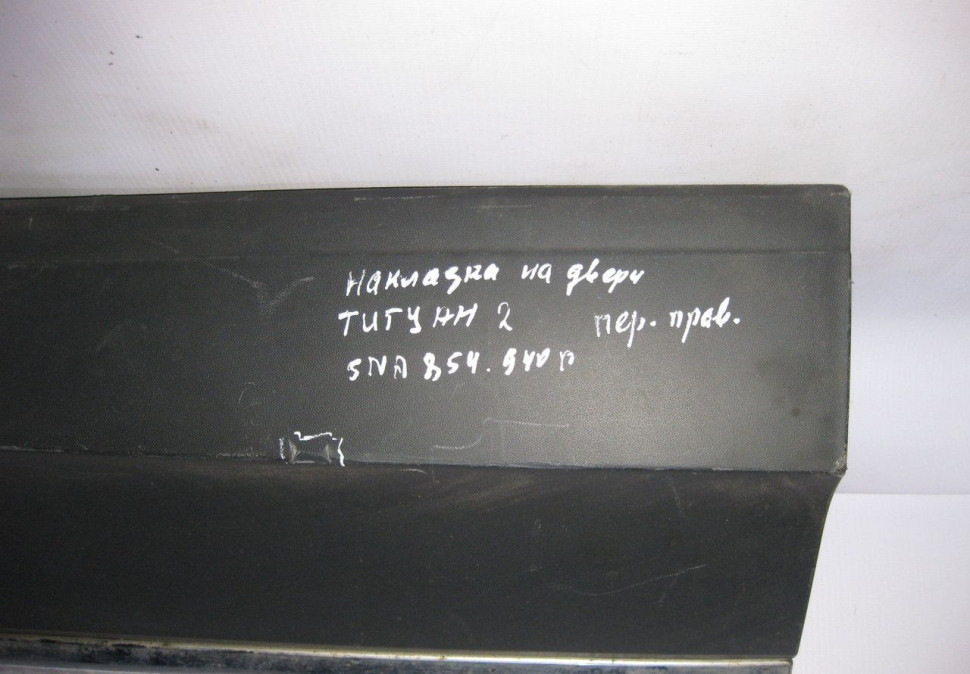 Накладка на двери
ТИГУАН 2 пер. прав.
5NA 854.940 П